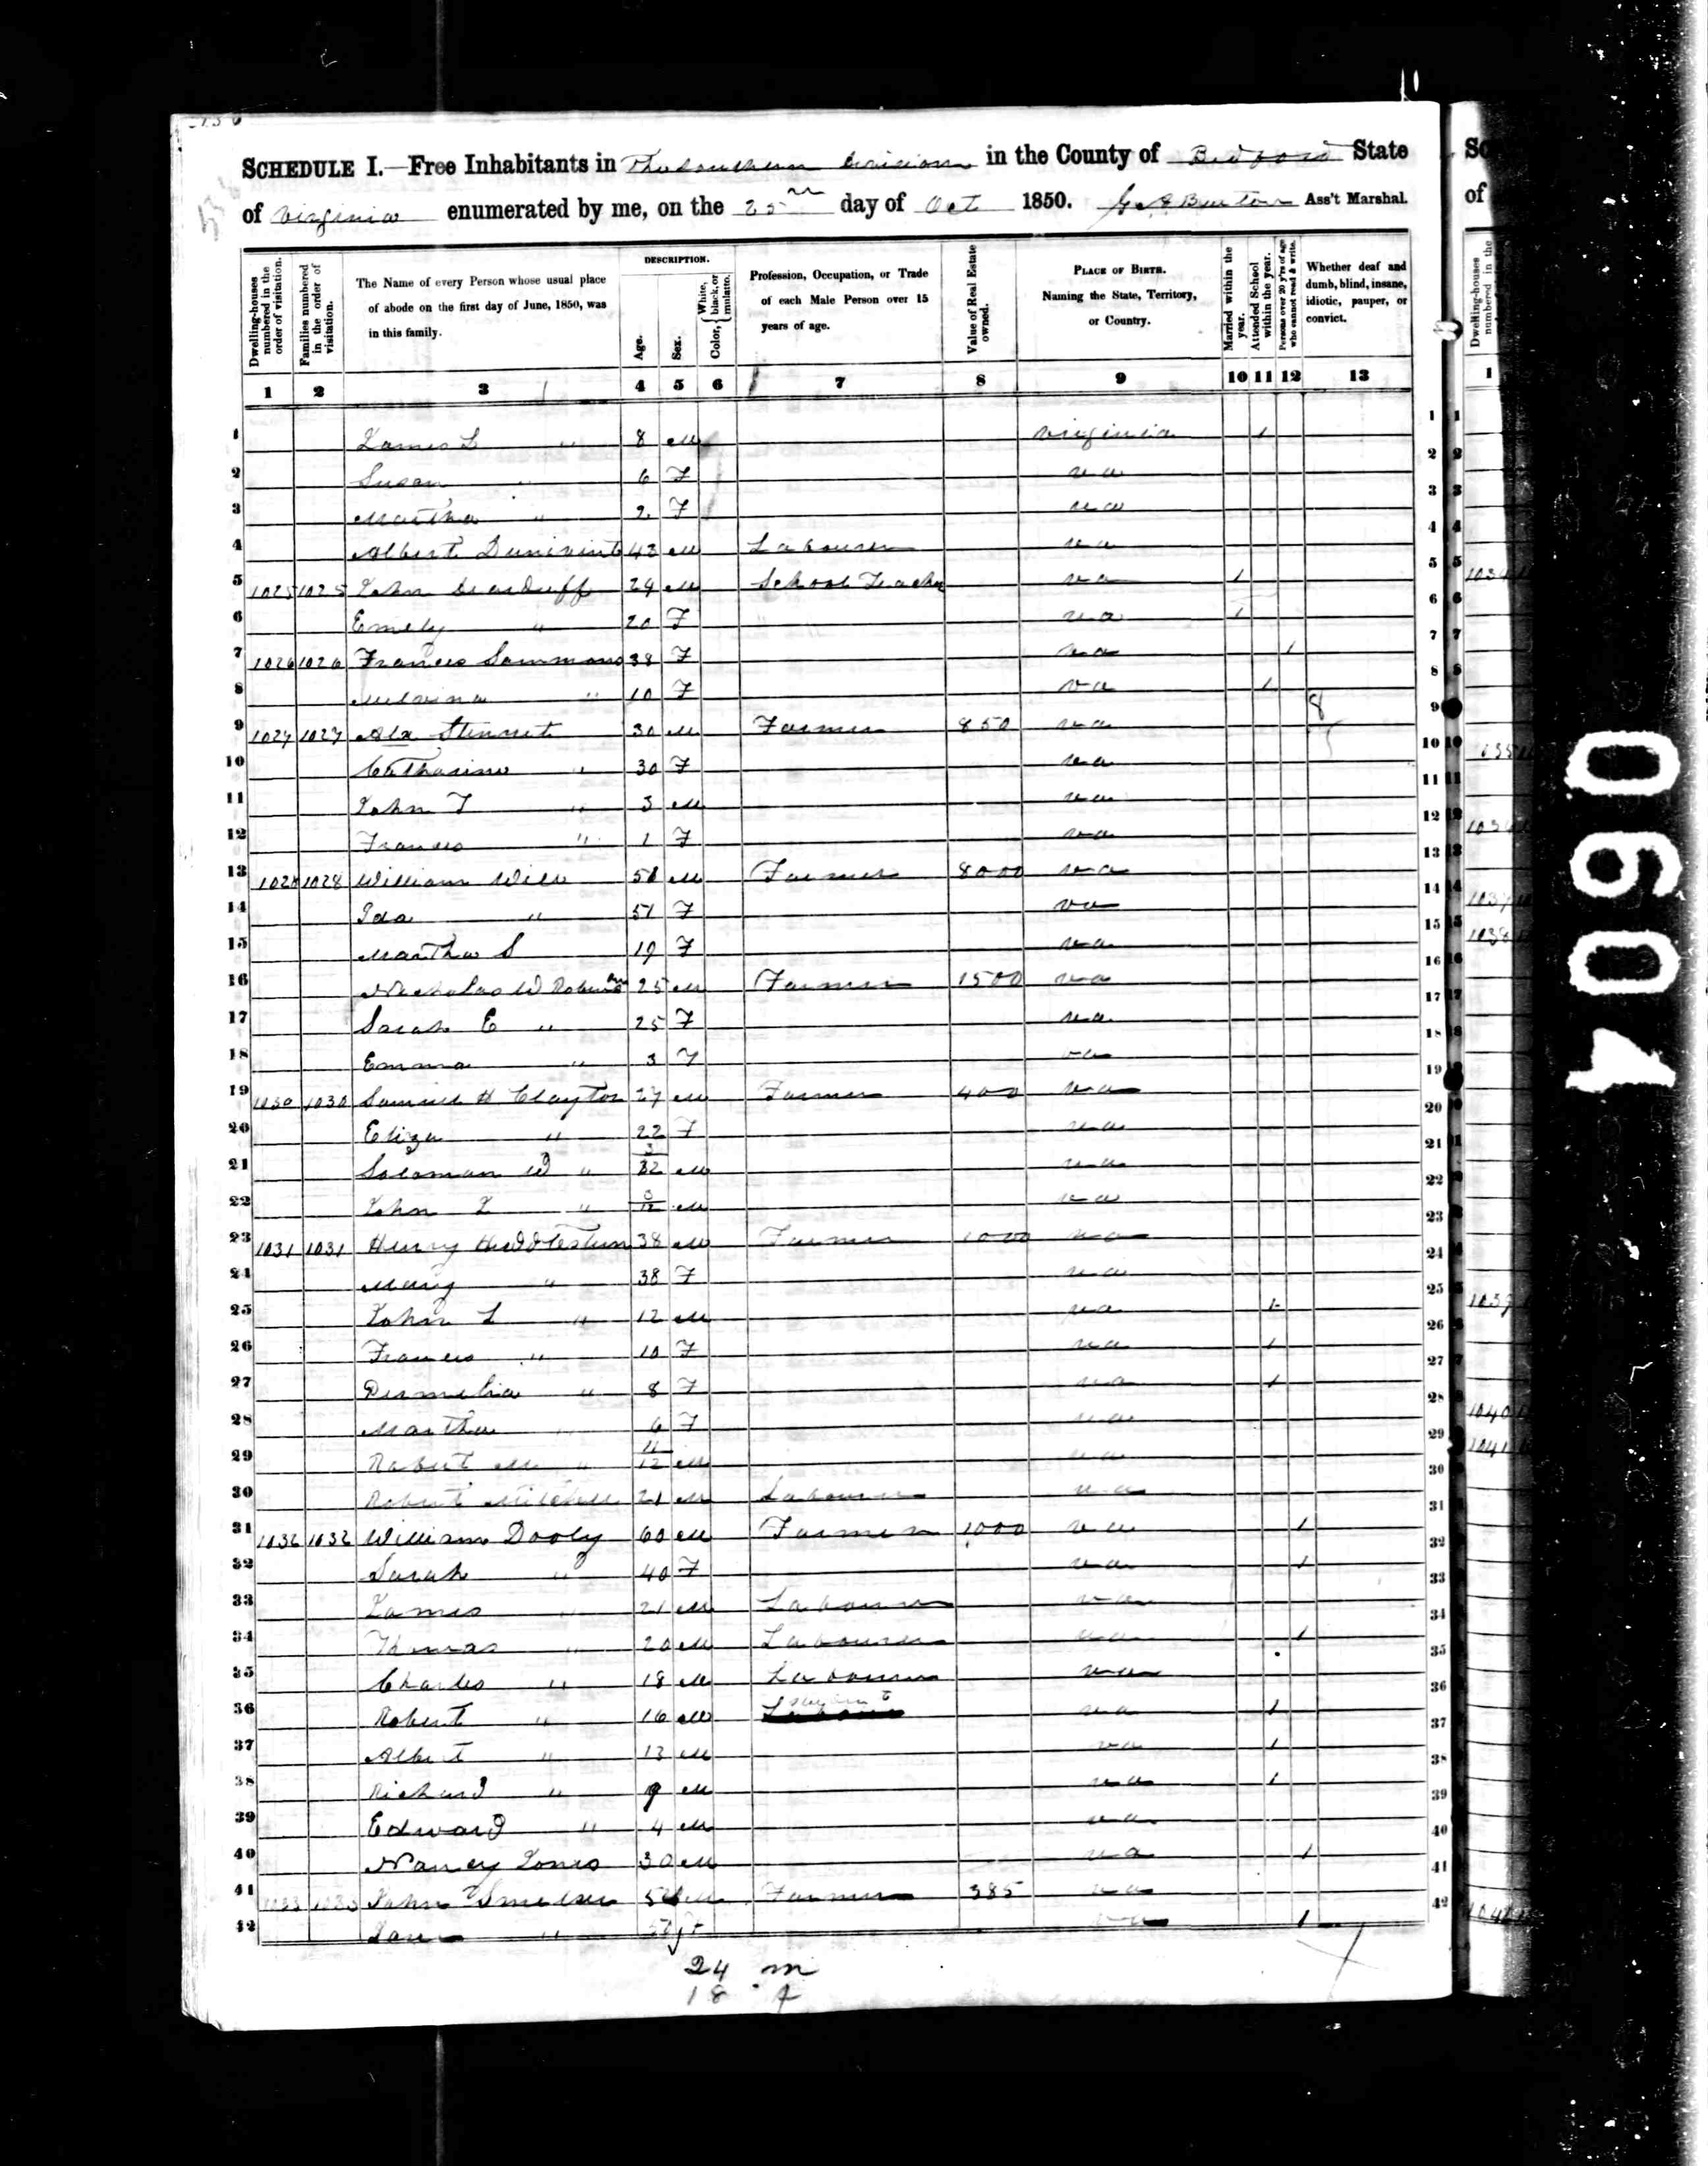 SCHEDULE I.—Free Inhabitants in The Southern Division in the County of Bedford State
of Virginia enumerated by me, on the 25th day of Oct 1850. Ass't Marshal.
Dwelling-houses numbered in the order of visitation.
Families numbered in the order of visitation.
The Name of every Person whose usual place of abode on the first day of June, 1850, was in this family.
DESCRIPTION.
Age.
Sex.
Color, { White, black, or mulatto.
Profession, Occupation, or Trade of each Male Person over 15 years of age.
Value of Real Estate owned.
PLACE OF BIRTH. Naming the State, Territory, or Country.
Married within the year.
Attended School within the year.
Persons over 20 y'rs of age who cannot read & write.
Whether deaf and dumb, blind, insane, idiotic, pauper, or convict.
1 2 3 4 5 6 7 8 9 10 11 12 13
1 James L " 8 M Virginia 1 1
2 Susan " 6 F va 2
3 Martha " 2 F va 3
4 Albert 43 M Labourer va 4
5 1025 1025 John 24 M School Teacher va 1 5
6 Emely " 20 F va 1 6
7 1026 1026 Frances Sammons 38 F va 1 7
8 Melvina " 10 F va 1 8
9 1027 1027 Alx Stinnet 30 M Farmer 850 va 9
10 Catharine " 30 F va 10
11 John T " 3 M va 11
12 Frances " 1 F va 12
13 1028 1028 William 51 M Farmer 8000 va 13
14 Ida " 51 F va 14
15 Martha S 19 F va 15
16 Nicholas W 25 M Farmer 1500 va 16
17 Sarah E " 25 F va 17
18 Emma " 3 F va 18
19 1030 1030 Samuel H Clayton 27 M Farmer 400 va 19
20 Eliza " 22 F va 20
21 Soloman W " M va 21
22 John " M va 22
23 1031 1031 Henry Huddlestun 38 M Farmer 1000 va 23
24 Mary " 38 F va 24
25 John L " 12 M va 1 25
26 Frances " 10 F va 1 26
27 " 8 F va 1 27
28 Martha " 6 F va 28
29 Robert M " 11/12 M va 29
30 Robert Mitchell 21 M Labourer va 30
31 1032 1032 William Dooly 60 M Farmer 1000 va 1 31
32 Sarah " 40 F va 1 32
33 James " 21 M Labourer va 33
34 Thomas " 20 M Labourer va 1 34
35 Charles " 18 M Labourer va 35
36 Robert " 16 M va 1 36
37 Albert " 13 M va 1 37
38 Richard " 9 M va 1 38
39 Edward " 4 M va 39
40 Nancy Jones 30 M va 1 40
41 1033 1033 John M Farmer 385 va 41
42 Jane " va 1 42
24 m
18 f
0904